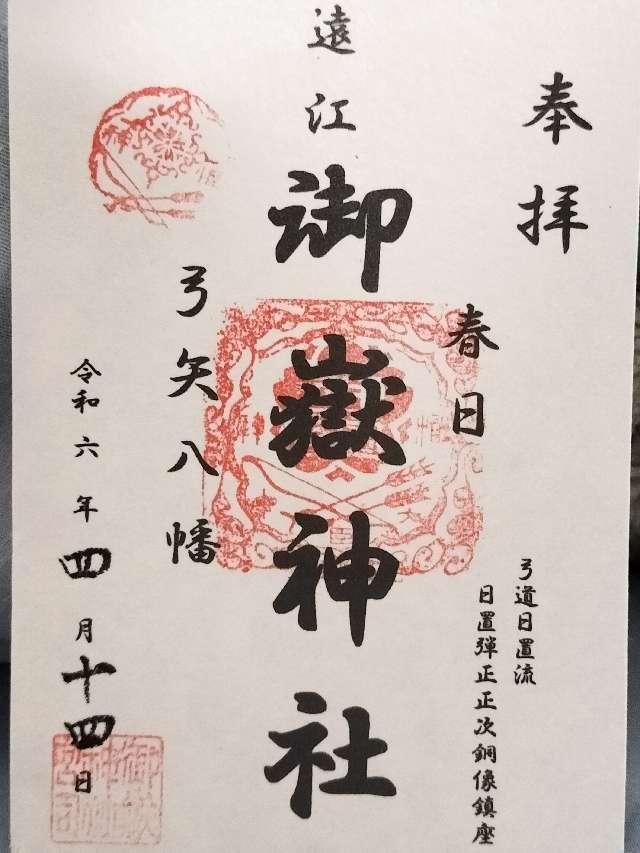 奉拝
春日
弓道日置流
日置弾正正次銅像鎮座
遠江
御嶽神社
弓矢八幡
令和六年四月十四日